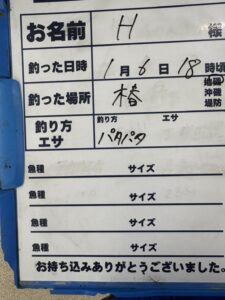 お名前 H 様
釣った日時 1月6日18時頃
釣った場所 椿 地磯 沖磯 堤防
釣り方 エサ 釣り方 パタパタ エサ
魚種 サイズ
魚種 サイズ
魚種 サイズ
魚種 サイズ
お持ち込みありがとうございました。